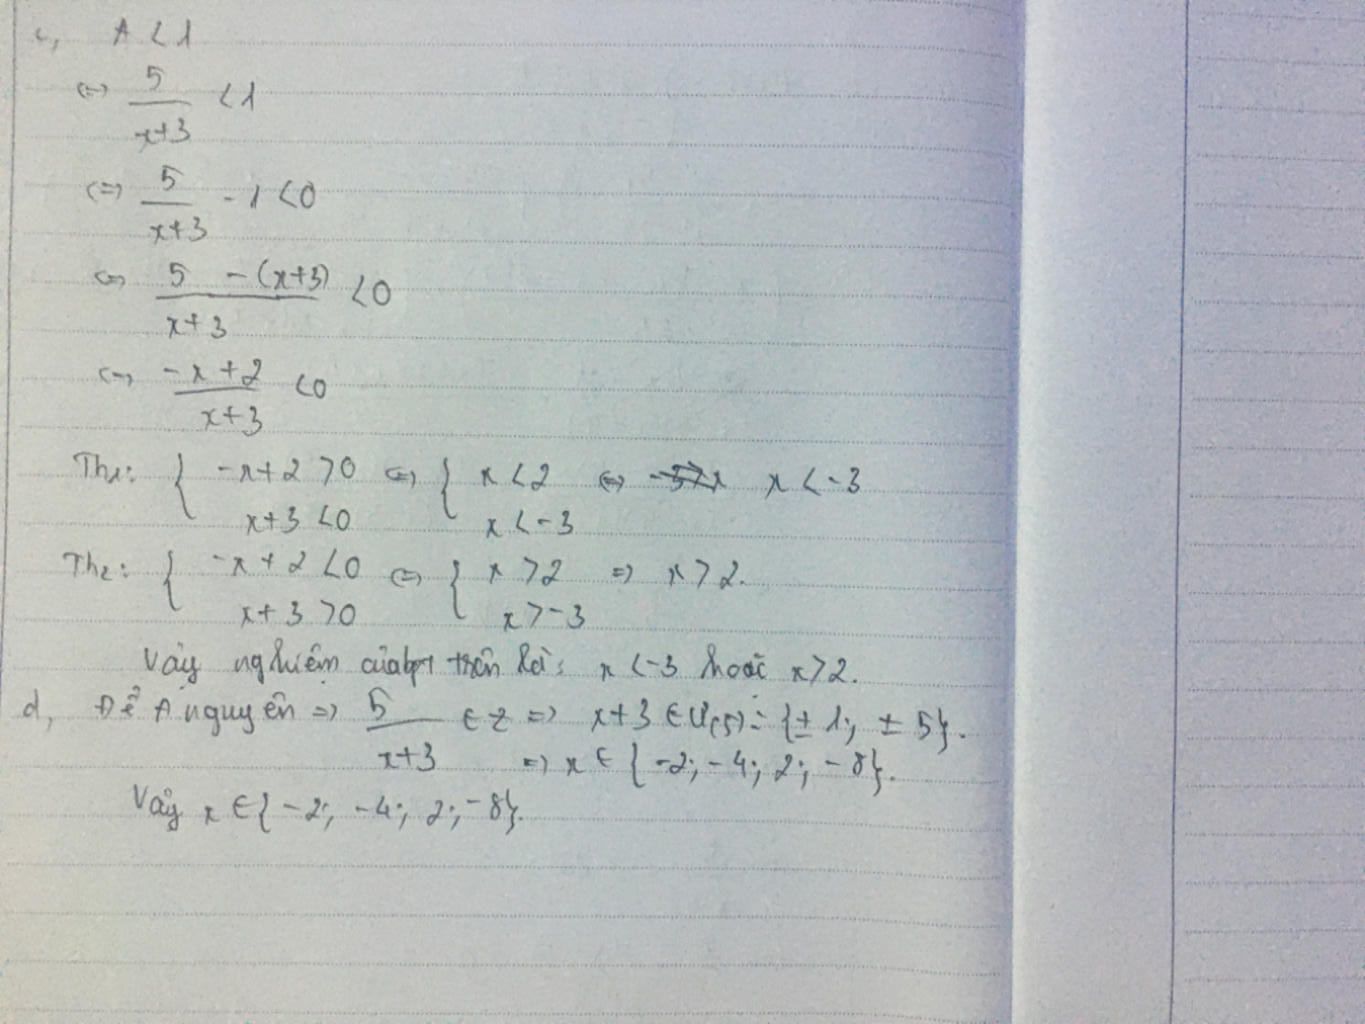 c, A < 1
<=> 5/(x+3) < 1
<=> 5/(x+3) - 1 < 0
<=> (5 - (x+3))/(x+3) < 0
<=> (-x+2)/(x+3) < 0
Th1: { -x+2 > 0 <=> { x < 2 <=> x < -3
x+3 < 0 x < -3
Th2: { -x+2 < 0 <=> { x > 2 => x > 2.
x+3 > 0 x > -3
Vậy nghiệm của bpt trên là: x < -3 hoặc x > 2.
d, Để A nguyên => 5/(x+3) ∈ Z => x+3 ∈ Ư(5) = {±1; ±5}.
=> x ∈ {-2; -4; 2; -8}.
Vậy x ∈ {-2; -4; 2; -8}.